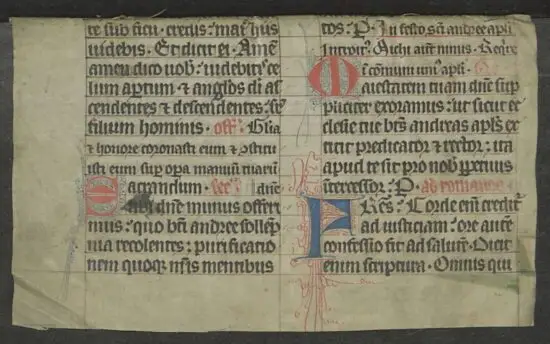 te sub ficu · credis: mai' hiis
uidebis · Et dicit ei · Amē
amē dico uob̄: uidebitis ce
lum aptum & anglos di as
cendentes & descendentes: sr̄
filium hominis · off. Gl̄ia
& honore coronasti eum &
isti eum sup̄ opa manuū tuarū
Sacrandum · sec̄
tibi dn̄e munus offeri
mus: quo bt̄i andree sollēp
nia recolentes: purificatio
nem quoq; nr̄is mentibus
tos: P. In festo sc̄i andree apl̄i
Introit'. Michi aut̄ nimis. Reqr̄e
ī cōmuni uni' apl̄i.
Maiestatem tuam dn̄e sup
pliciter exoramus: ut sicut ec
clesie tue bt̄s andreas apl̄s ex
titit predicator & rector: ita
apud te sit pro nob̄ ꝑpetuus
intercessor: P. ad romanos
FRĒS: Corde enī creditr̄
ad iusticiam: ore autē
confessio fit ad salutē. Dicit
enim scriptura. Omnis qui